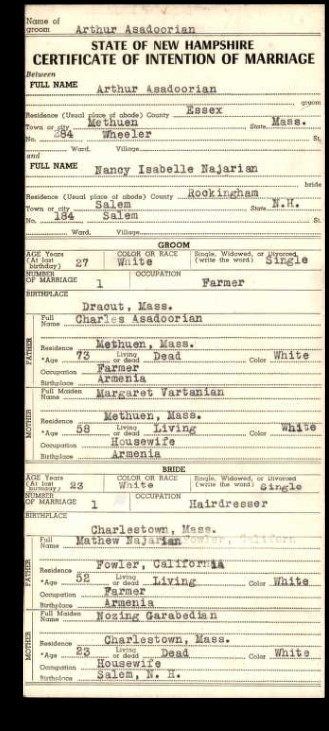 Name of
groom Arthur Asadoorian
STATE OF NEW HAMPSHIRE
CERTIFICATE OF INTENTION OF MARRIAGE
Between
FULL NAME
Arthur Asadoorian
groom
Residence (Usual place of abode) County Essex
Town or city Methuen State Mass.
No. 284 Wheeler St.
Ward. Village
and
FULL NAME
Nancy Isabelle Najarian
bride
Residence (Usual place of abode) County Rockingham
Town or city Salem State N.H.
No. 184 Salem St.
Ward. Village
GROOM
AGE Years (At last birthday) 27 COLOR OR RACE White Single, Widowed, or Divorced (write the word) Single
NUMBER OF MARRIAGE 1 OCCUPATION Farmer
BIRTHPLACE
Dracut, Mass.
FATHER
Full Name Charles Asadoorian
Residence Methuen, Mass.
*Age 73 Living or dead Dead Color White
Occupation Farmer
Birthplace Armenia
MOTHER
Full Maiden Name Margaret Vartanian
Residence Methuen, Mass.
*Age 58 Living or dead Living Color White
Occupation Housewife
Birthplace Armenia
BRIDE
AGE Years (At last birthday) 23 COLOR OR RACE White Single, Widowed, or Divorced (write the word) Single
NUMBER OF MARRIAGE 1 OCCUPATION Hairdresser
BIRTHPLACE
Charlestown, Mass.
FATHER
Full Name Mathew Najarian Fowler, Californ
Residence Fowler, California
*Age 52 Living or dead Living Color White
Occupation Farmer
Birthplace Armenia
MOTHER
Full Maiden Name Nozing Garabedian
Residence Charlestown, Mass.
*Age 23 Living or dead Dead Color White
Occupation Housewife
Birthplace Salem, N. H.